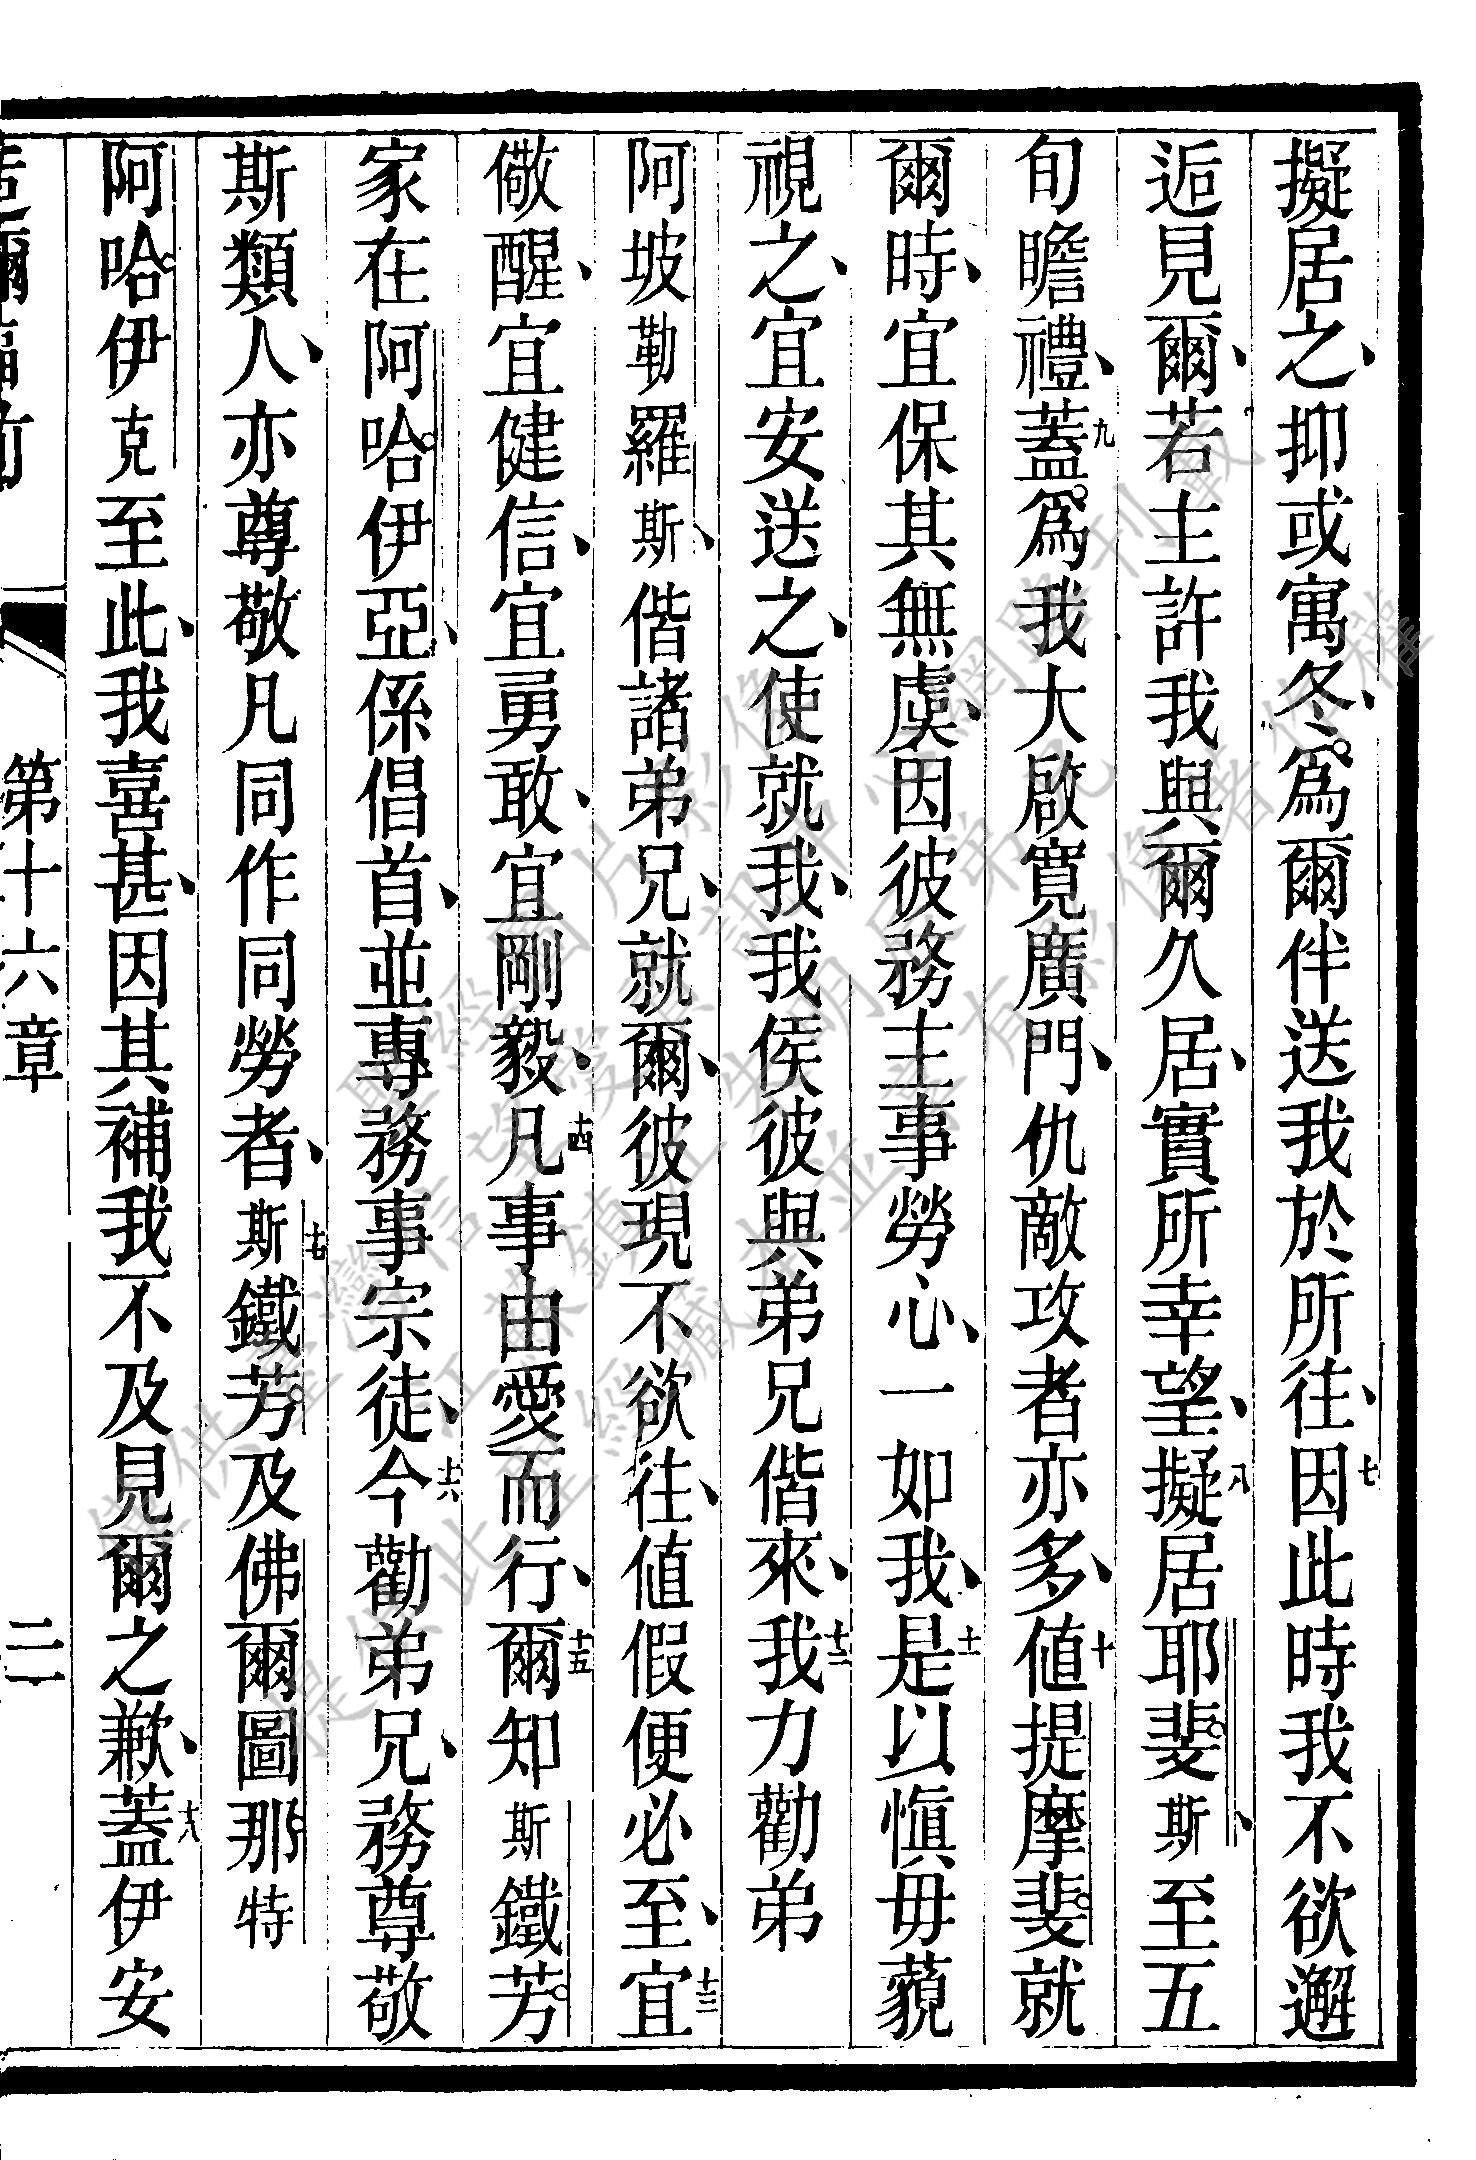 擬居之、抑或寓冬、爲爾伴送我於所往、七因此時我不欲邂
逅見爾、若主許我與爾久居、實所幸望、八擬居耶斐斯、至五
旬瞻禮、九蓋爲我大啟寬廣門、仇敵攻者亦多、十値提摩斐就
爾時、宜保其無虞、因彼務主事勞心、一如我、十一是以愼毋藐
視之、宜安送之、使就我、我俟彼與弟兄偕來、十二我力勸弟
阿坡勒羅斯、偕諸弟兄、就爾、彼現不欲往、値假便必至、十三宜
儆醒、宜健信、宜勇敢、宜剛毅、十四凡事由愛而行、十五爾知斯鐵芳
家在阿哈伊亞、係倡首、並專務事宗徒、十六今勸弟兄、務尊敬
斯類人、亦尊敬凡同作同勞者、十七斯鐵芳及佛爾圖那特
阿哈伊克至此、我喜甚、因其補我不及見爾之歉、十八蓋伊安
第十六章 二